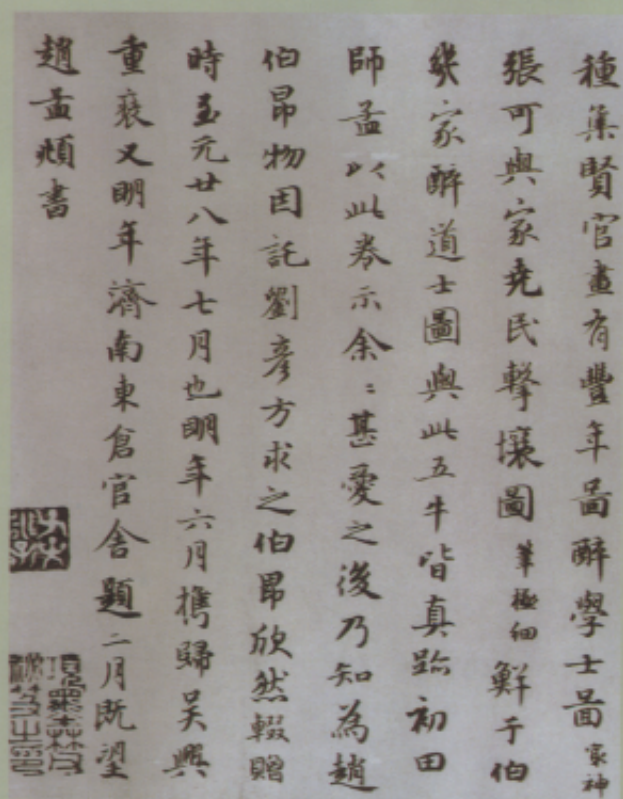 種集賢官畫有豐年啚醉學士啚㝡神
張可與家堯民擊壤圖筆極細鮮于伯
幾家醉道士圖與此五牛皆真跡初田
師孟以此卷示余〻甚愛之後乃知為趙
伯昂物因託劉彥方求之伯昂欣然輟贈
時至元廿八年七月也明年六月攜歸吳興
重裝又明年濟南東倉官舍題二月既望
趙孟頫書